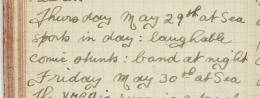 Thursday May 29th at Sea
sports in day: laughable
comic stunts: band at night
Friday May 30th at Sea
The